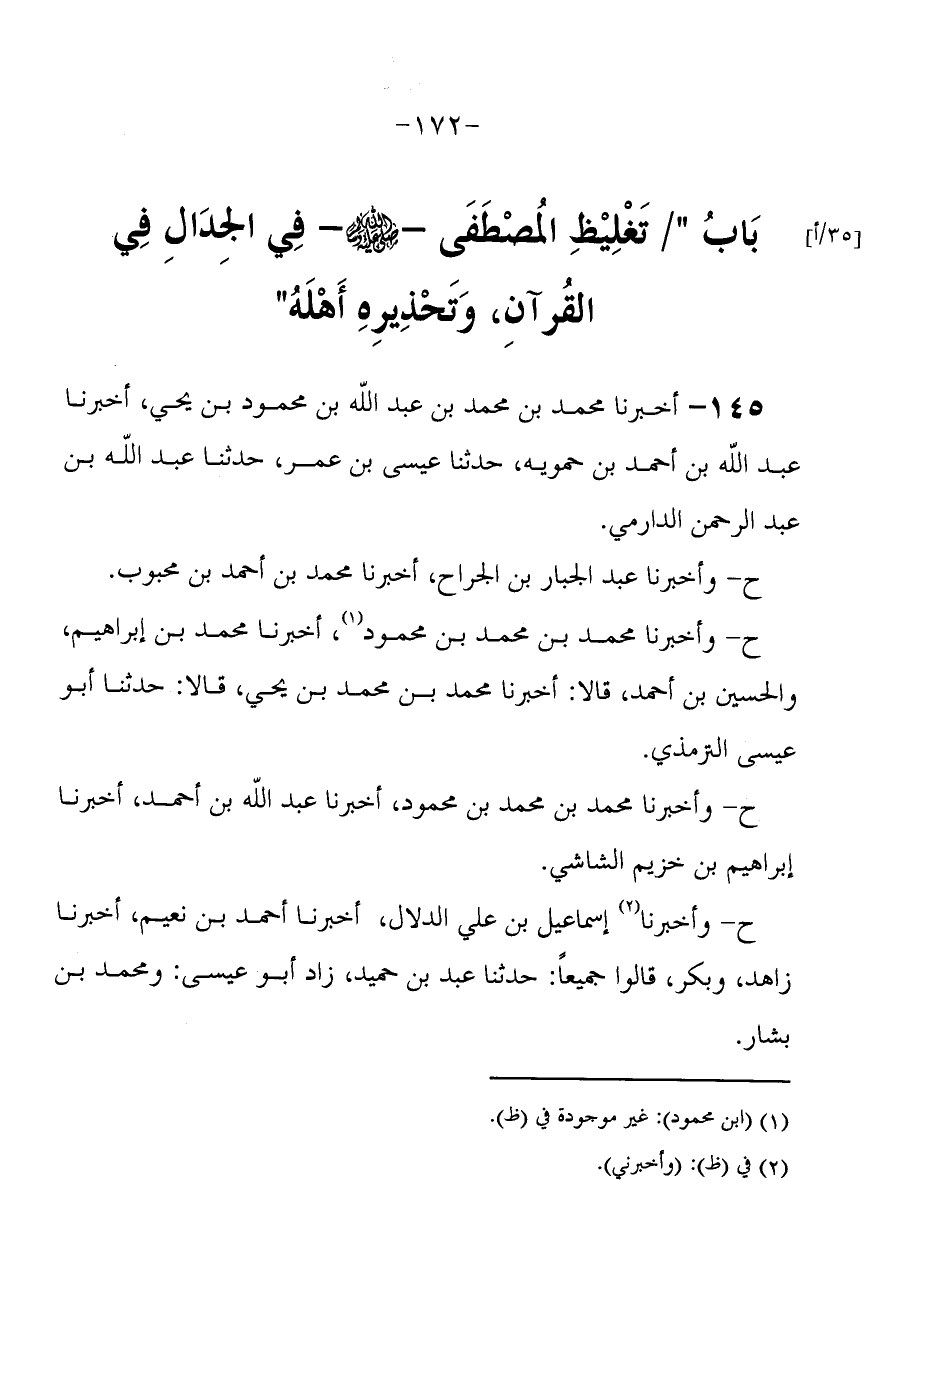 -١٧٢-
[٣٥/أ] بَابُ "/ تَغْلِيْظِ المُصْطَفَى -ﷺ- فِي الجِدَالِ فِي
القُرآنِ، وَتَحْذِيرِهِ أَهْلَهُ"
١٤٥- أخبرنا محمد بن محمد بن عبد الله بن محمود بن يحي، أخبرنا
عبد الله بن أحمد بن حمويه، حدثنا عيسى بن عمر، حدثنا عبد الله بن
عبد الرحمن الدارمي.
ح- وأخبرنا عبد الجبار بن الجراح، أخبرنا محمد بن أحمد بن محبوب.
ح- وأخبرنا محمد بن محمد بن محمود(١)، أخبرنا محمد بن إبراهيم،
والحسين بن أحمد، قالا: أخبرنا محمد بن محمد بن يحي، قالا: حدثنا أبو
عيسى الترمذي.
ح- وأخبرنا محمد بن محمد بن محمود، أخبرنا عبد الله بن أحمد، أخبرنا
إبراهيم بن خزيم الشاشي.
ح- وأخبرنا(٢) إسماعيل بن علي الدلال، أخبرنا أحمد بن نعيم، أخبرنا
زاهد، وبكر، قالوا جميعاً: حدثنا عبد بن حميد، زاد أبو عيسى: ومحمد بن
بشار.
(١) (ابن محمود): غير موجودة في (ظ).
(٢) في (ظ): (وأخبرني).